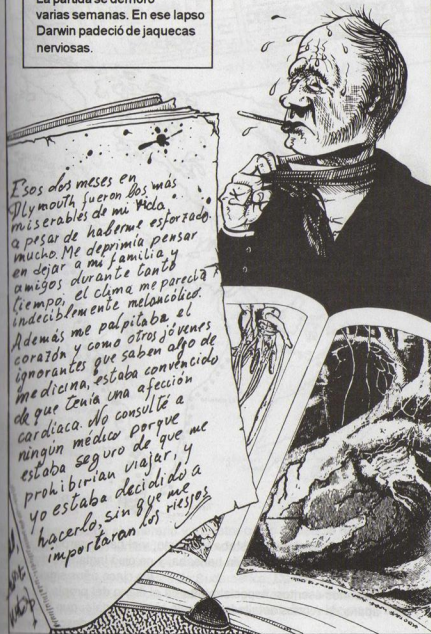 La partida se demoró
varias semanas. En ese lapso
Darwin padeció de jaquecas
nerviosas.
Esos dos meses en
Plymouth fueron los más
miserables de mi vida
a pesar de haberme esforzado
mucho. Me deprimía pensar
en dejar a mi familia y
amigos durante tanto
tiempo, el clima me parecía
indeciblemente melancólico.
Además me palpitaba el
corazón y como otros jóvenes
ignorantes que saben algo de
medicina, estaba convencido
de que tenía una afección
cardíaca. No consulté a
ningún médico porque
estaba seguro de que me
prohibirían viajar, y
yo estaba decidido a
hacerlo, sin que me
importaran los riesgos